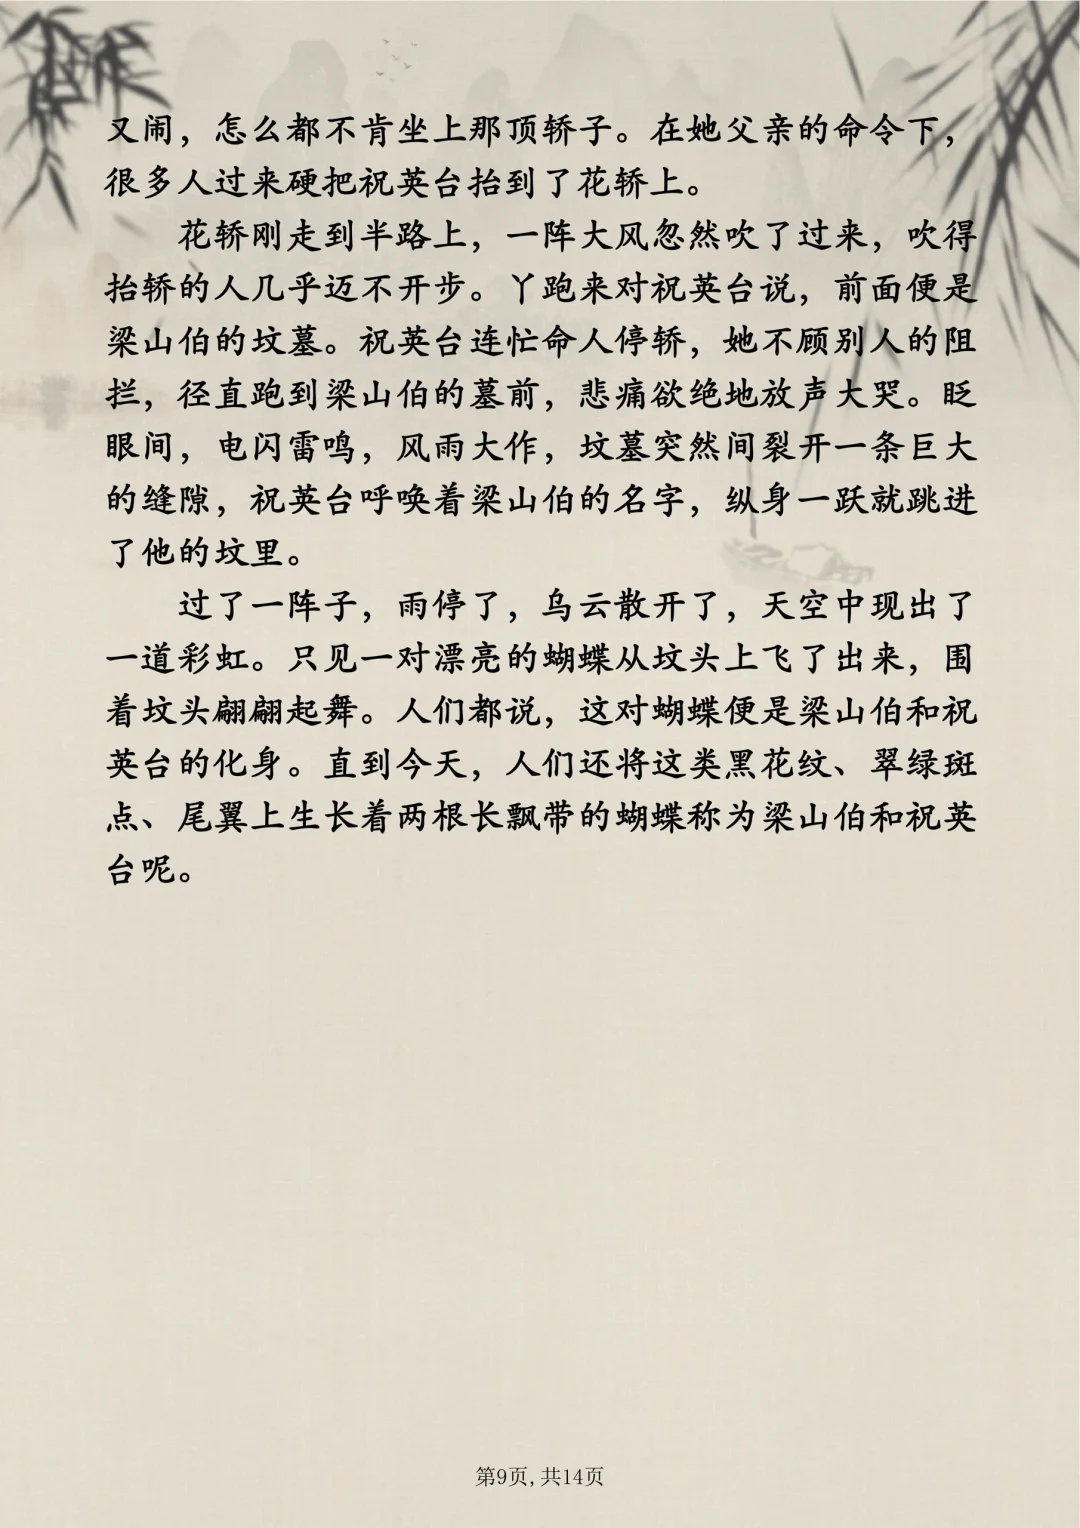 又闹，怎么都不肯坐上那顶轿子。在她父亲的命令下，
很多人过来硬把祝英台抬到了花轿上。
花轿刚走到半路上，一阵大风忽然吹了过来，吹得
抬轿的人几乎迈不开步。丫跑来对祝英台说，前面便是
梁山伯的坟墓。祝英台连忙命人停轿，她不顾别人的阻
拦，径直跑到梁山伯的墓前，悲痛欲绝地放声大哭。眨
眼间，电闪雷鸣，风雨大作，坟墓突然间裂开一条巨大
的缝隙，祝英台呼唤着梁山伯的名字，纵身一跃就跳进
了他的坟里。
过了一阵子，雨停了，乌云散开了，天空中现出了
一道彩虹。只见一对漂亮的蝴蝶从坟头上飞了出来，围
着坟头翩翩起舞。人们都说，这对蝴蝶便是梁山伯和祝
英台的化身。直到今天，人们还将这类黑花纹、翠绿斑
点、尾翼上生长着两根长飘带的蝴蝶称为梁山伯和祝英
台呢。
第9页,共14页